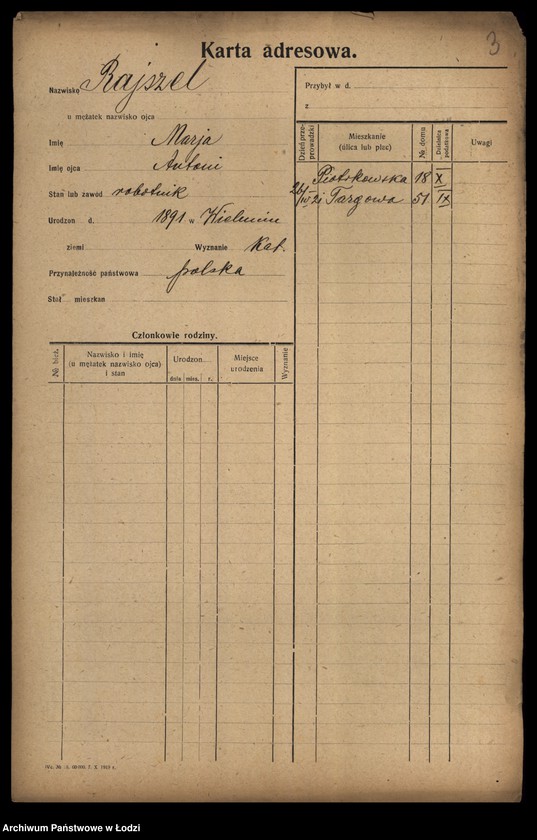 3
Karta adresowa.
Nazwisko Rajszel
u mężatek nazwisko ojca
Imię Marja
Imię ojca Antoni
Stan lub zawód robotnik
Urodzon d. 1891 w Wieluniu
ziemi Wyznanie Kat.
Przynależność państwowa polska
Stoł mieszkan
Przybył w d.
z
Dzień przeprowadzki Mieszkanie (ulica lub plac) № domu Dzielnica podatkowa Uwagi
Piotrkowska 18 X
26/IV 21 Targowa 51 IX
Członkowie rodziny.
№ bież. Nazwisko i imię (u mężatek nazwisko ojca) i stan Urodzon... Miejsce urodzenia Wyznanie
dnia mies. r.
Archiwum Państwowe w Łodzi